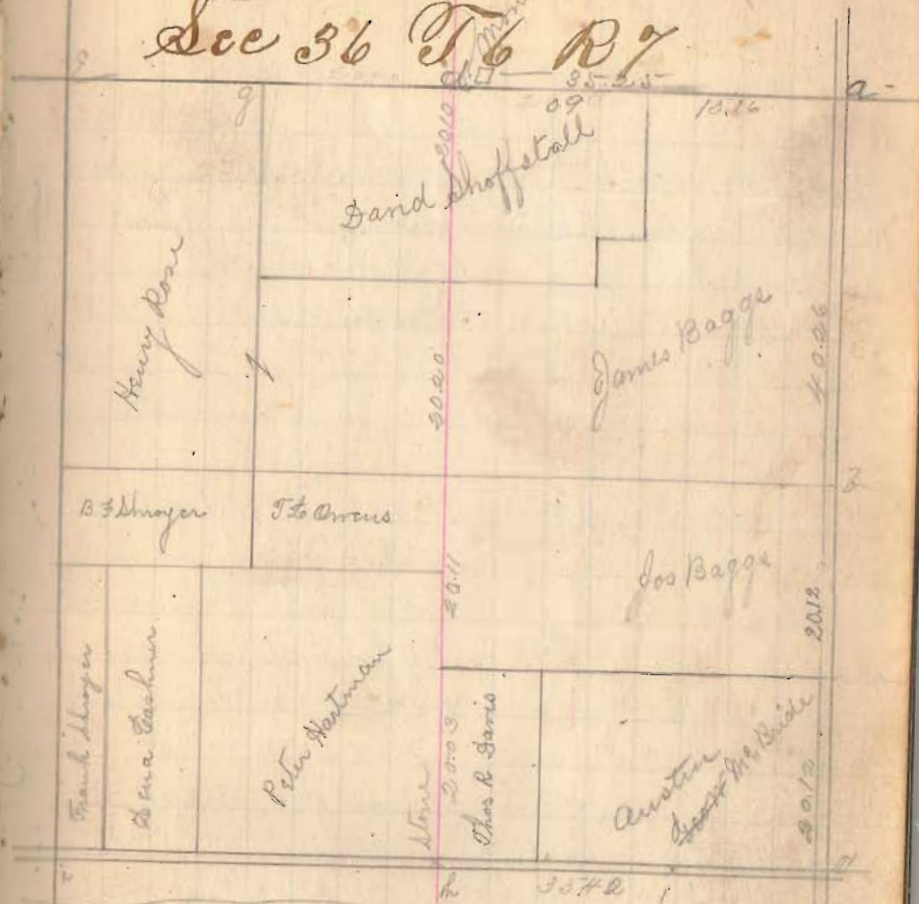 Sec 36 T 6 R 7
35.25
a
g
09
10.26
20.10
David Shoffstall
Henry Rose
g
20.20
James Baggs
40.26
B F Shroyer
T L Owens
3
20.11
Jos Baggs
20.12
Frank Shroyer
Peter Hartman
Stone
20.03
Thos R Davis
Austin
McBride
20.12
h
35.42